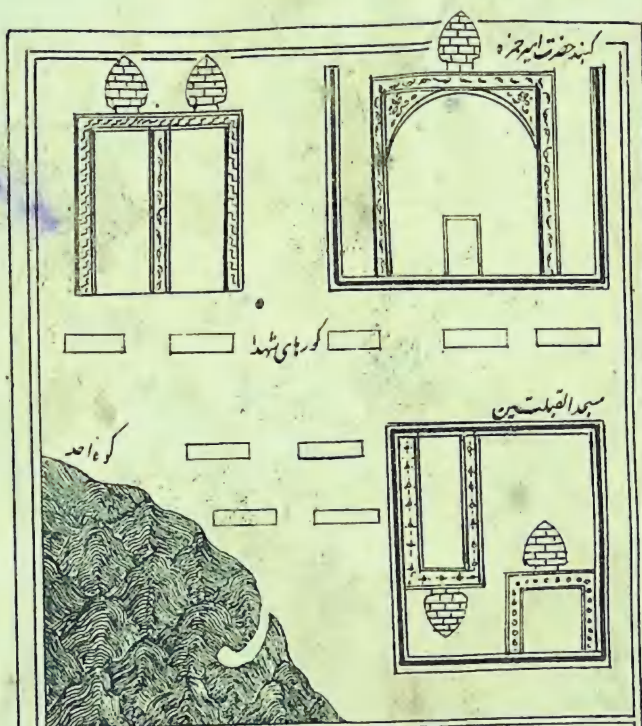 کنبد حضرت امیر حمزه
کورهای شهدا
مسجد القبلتین
کوه احد